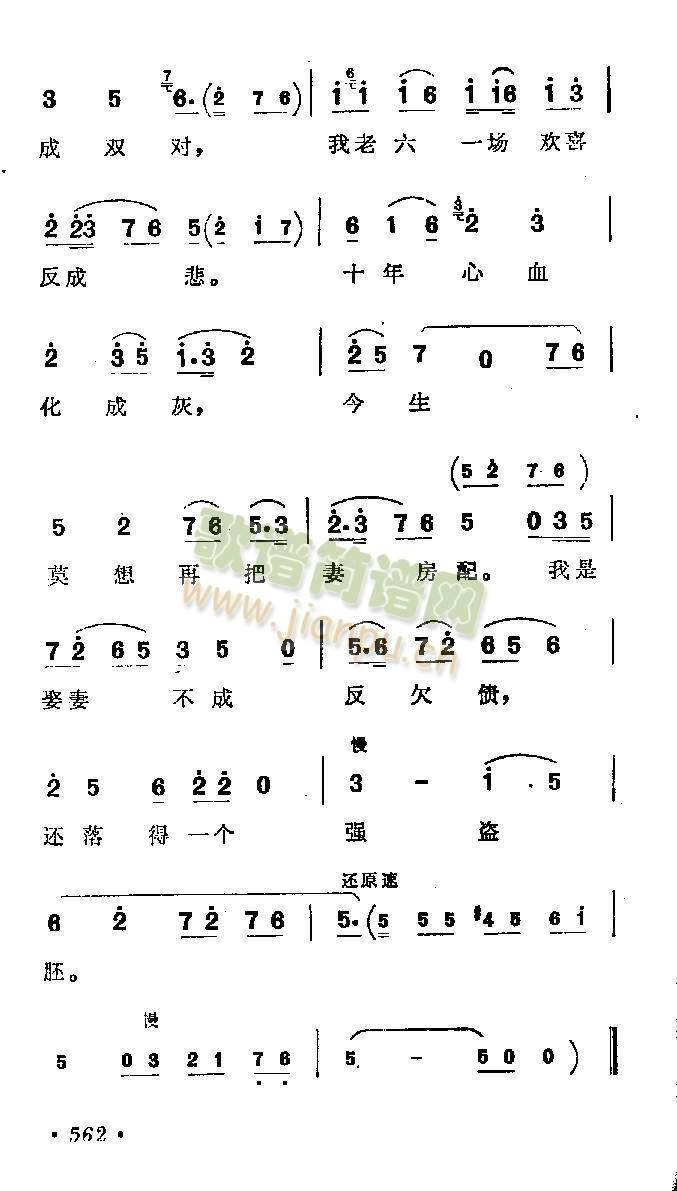 3 5 7 6.(2 7 6) | 6 1 1 1 6 1 1 6 1 3 |
成双对， 我老六一场欢喜
2 2 3 7 6 5(2 1 7) | 6 1 6 3 2 3 |
反成悲。十年心血
2 3 5 1.3 2 | 2 5 7 0 7 6 |
化成灰， 今生
(5 2 7 6)
5 2 7 6 5.3 | 2.3 7 6 5 0 3 5 |
莫想再把妻房配。我是
歌谱简谱网
www.jianpu.cn
7 2 6 5 3 5 0 | 5.6 7 2 6 5 6 |
娶妻不成反欠债，
慢
2 5 6 2 2 0 | 3 - 1 . 5 |
还落得一个强盗
还原速
6 2 7 2 7 6 | 5.(5 5 5 #4 5 6 1 |
胚。
慢
5 0 3 2 1 7 6 | 5 - 5 0 0 )
· 562 ·